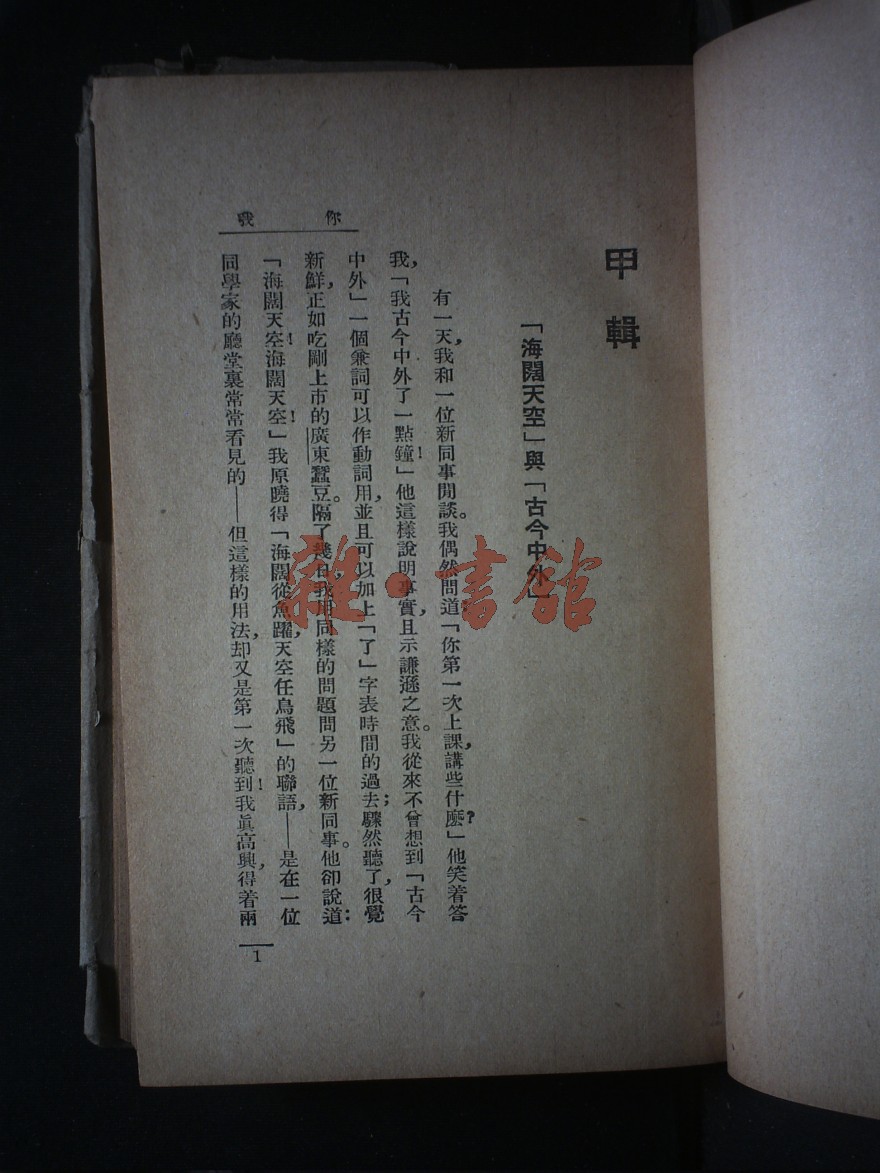 甲輯
「海闊天空」與「古今中外」
有一天,我和一位新同事閒談。我偶然問道「你第一次上課,講些什麽?」他笑着答
我,「我古今中外了一點鐘!」他這樣說明事實,且示謙遜之意。我從來不曾想到「古今
中外」一個兼詞可以作動詞用,並且可以加上「了」字表時間的過去;驟然聽了,很覺
新鮮,正如吃剛上市的廣東蠶豆。隔了幾日,我用同樣的問題問另一位新同事。他卻說道:
「海闊天空!海闊天空!」我原曉得「海闊從魚躍,天空任鳥飛」的聯語,——是在一位
同學家的廳堂裏常常看見的——但這樣的用法,却又是第一次聽到!我眞高興,得着兩
你我
1
雜·書館